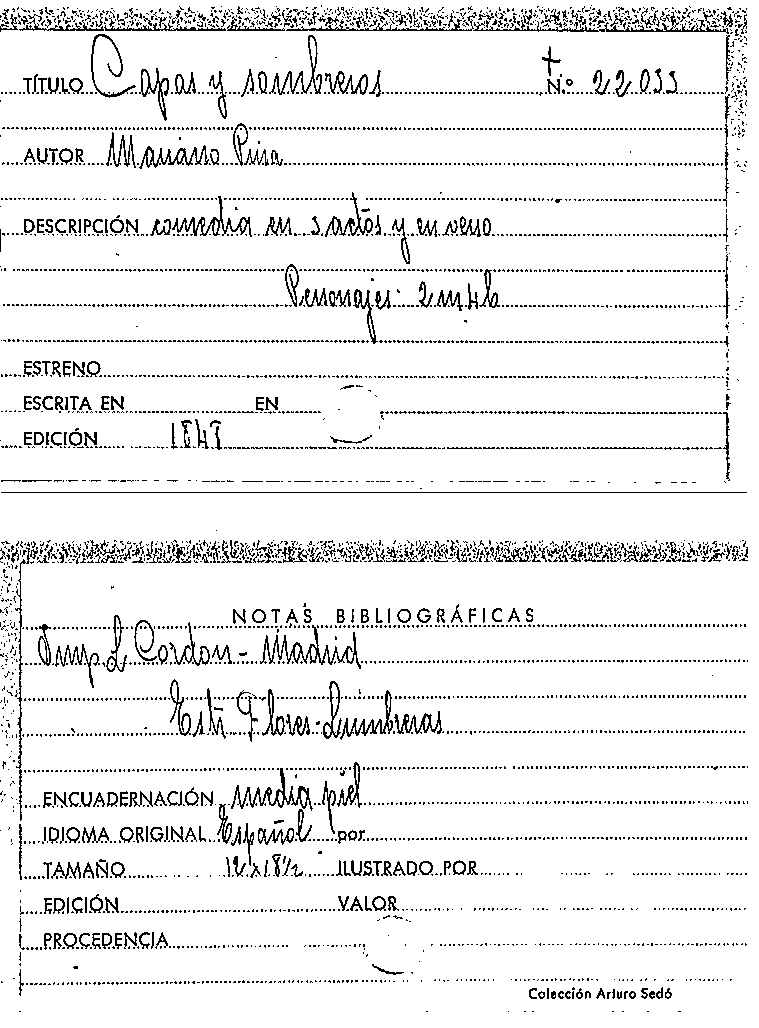 TÍTULO Capas y sombreros N.º 22033
AUTOR Mariano Pina
DESCRIPCIÓN comedia en 3 actos y en verso
Personajes: 2 m 4 h
ESTRENO
ESCRITA EN EN
EDICIÓN 1848
NOTAS BIBLIOGRÁFICAS
Imp L Cordon - Madrid
Flores-Lumbreras
ENCUADERNACIÓN media piel
IDIOMA ORIGINAL Español por
TAMAÑO 12 x 18½ ILUSTRADO POR
EDICIÓN VALOR
PROCEDENCIA
Colección Arturo Sedó